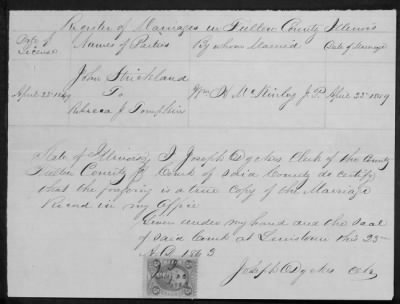 Register of Marriages in Fulton County Illinois
Date of License Names of Parties By whom Married Date of Marriage
John Strickland
April 22 1849 To Wm H McKinley J.P. April 22 1849
Rebecca J Tompkins
State of Illinois I Joseph Dyckes Clerk of the County
Fulton County Court of said County do certify
that the forgoing is a true Copy of the Marriage
Record in my office
Given under my hand and the Seal
of said Court at Lewistown this 25
A.D. 1863
Joseph Dyckes Clk